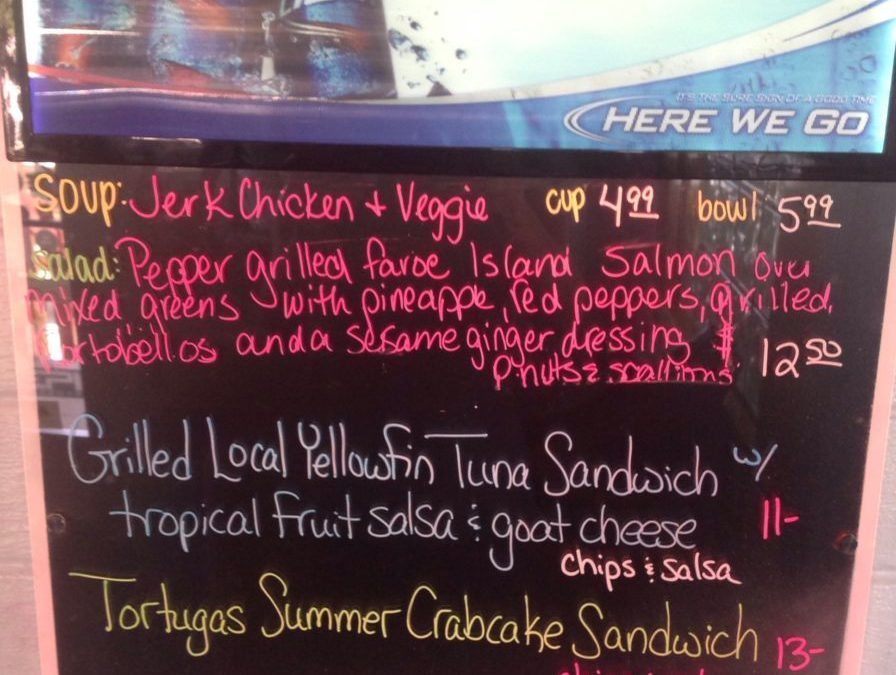 IT'S THE SURE SIGN OF A GOOD TIME
HERE WE GO
SOUP: Jerk Chicken + Veggie cup 4.99 bowl 5.99
salad: Pepper grilled faroe Island Salmon over
mixed greens with pineapple, red peppers, grilled
portobellos and a sesame ginger dressing $ 12.50
Pnuts & scallions
Grilled Local Yellowfin Tuna Sandwich w/
tropical fruit salsa & goat cheese 11-
chips & salsa
Tortugas Summer Crabcake Sandwich 13-